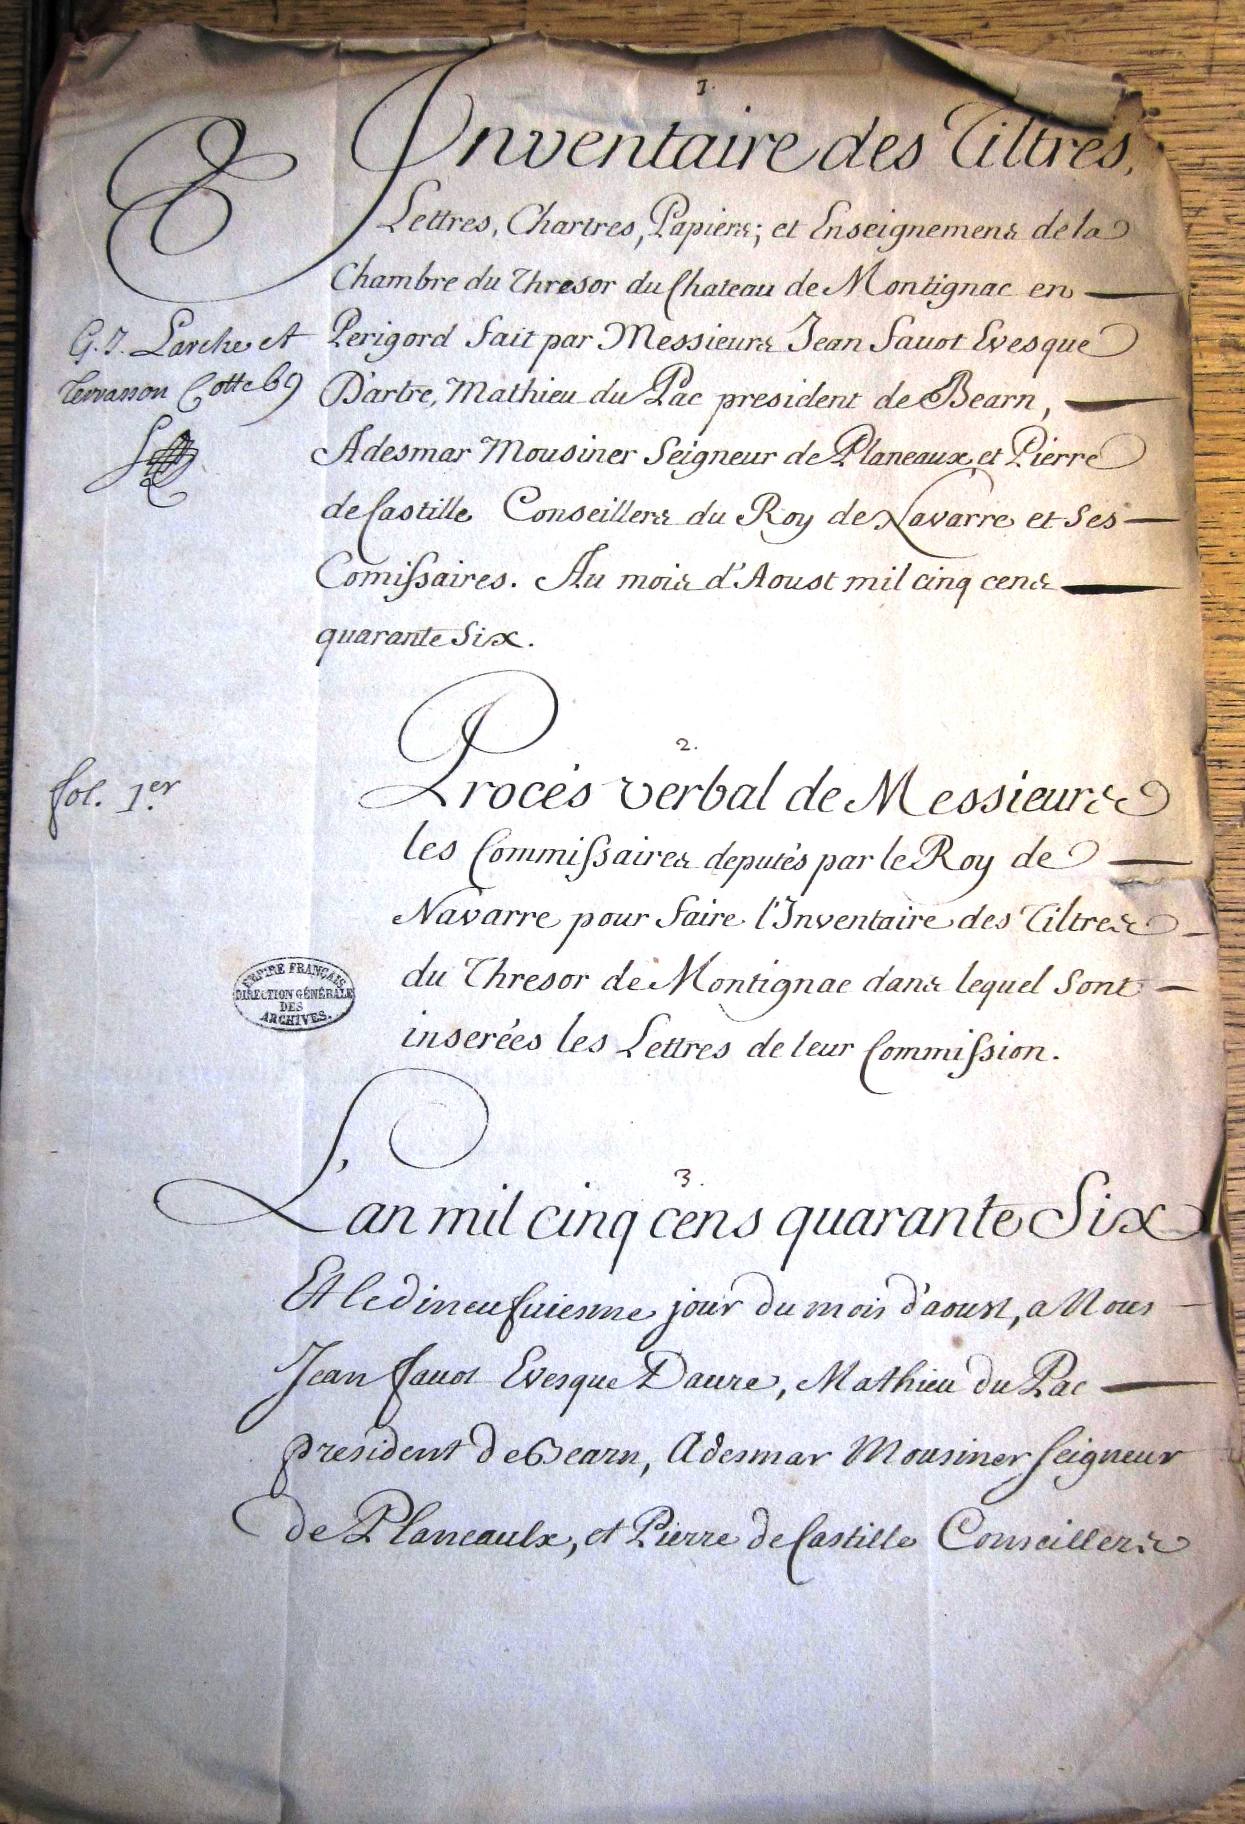 1.
Inventaire des Tiltres,
Lettres, Chartres, Papiers; et Enseignemens de la
Chambre du Thresor du Chateau de Montignac en
G. J. Larche et
Perigord fait par Messieurs Jean Fauot Evesque
Terrasson Cotte 69
D'artre, Mathieu du Pac president de Bearn,
Adesmar Mousiner Seigneur de Planeaux et Pierre
de Castille Conseillers du Roy de Navarre et Ses
Comissaires. Au mois d'Aoust mil cinq cens
quarante Six.
2.
fol. 1.er
Procés verbal de Messieurs
les Commissaires deputés par le Roy de
Navarre pour faire l'Inventaire des Tiltres
du Thresor de Montignac dans lequel Sont
EMPIRE FRANÇAIS
DIRECTION GÉNÉRALE
DES
ARCHIVES.
inserées les Lettres de leur Commission.
3.
L'an mil cinq cens quarante Six
Et le dineufuiesme jour du mois d'aoust, a Nous
Jean fauot Evesque Daure, Mathieu du Pac
president de Bearn, Adesmar Mousiner seigneur
de Planeaulx, et Pierre de Castille Conseillers